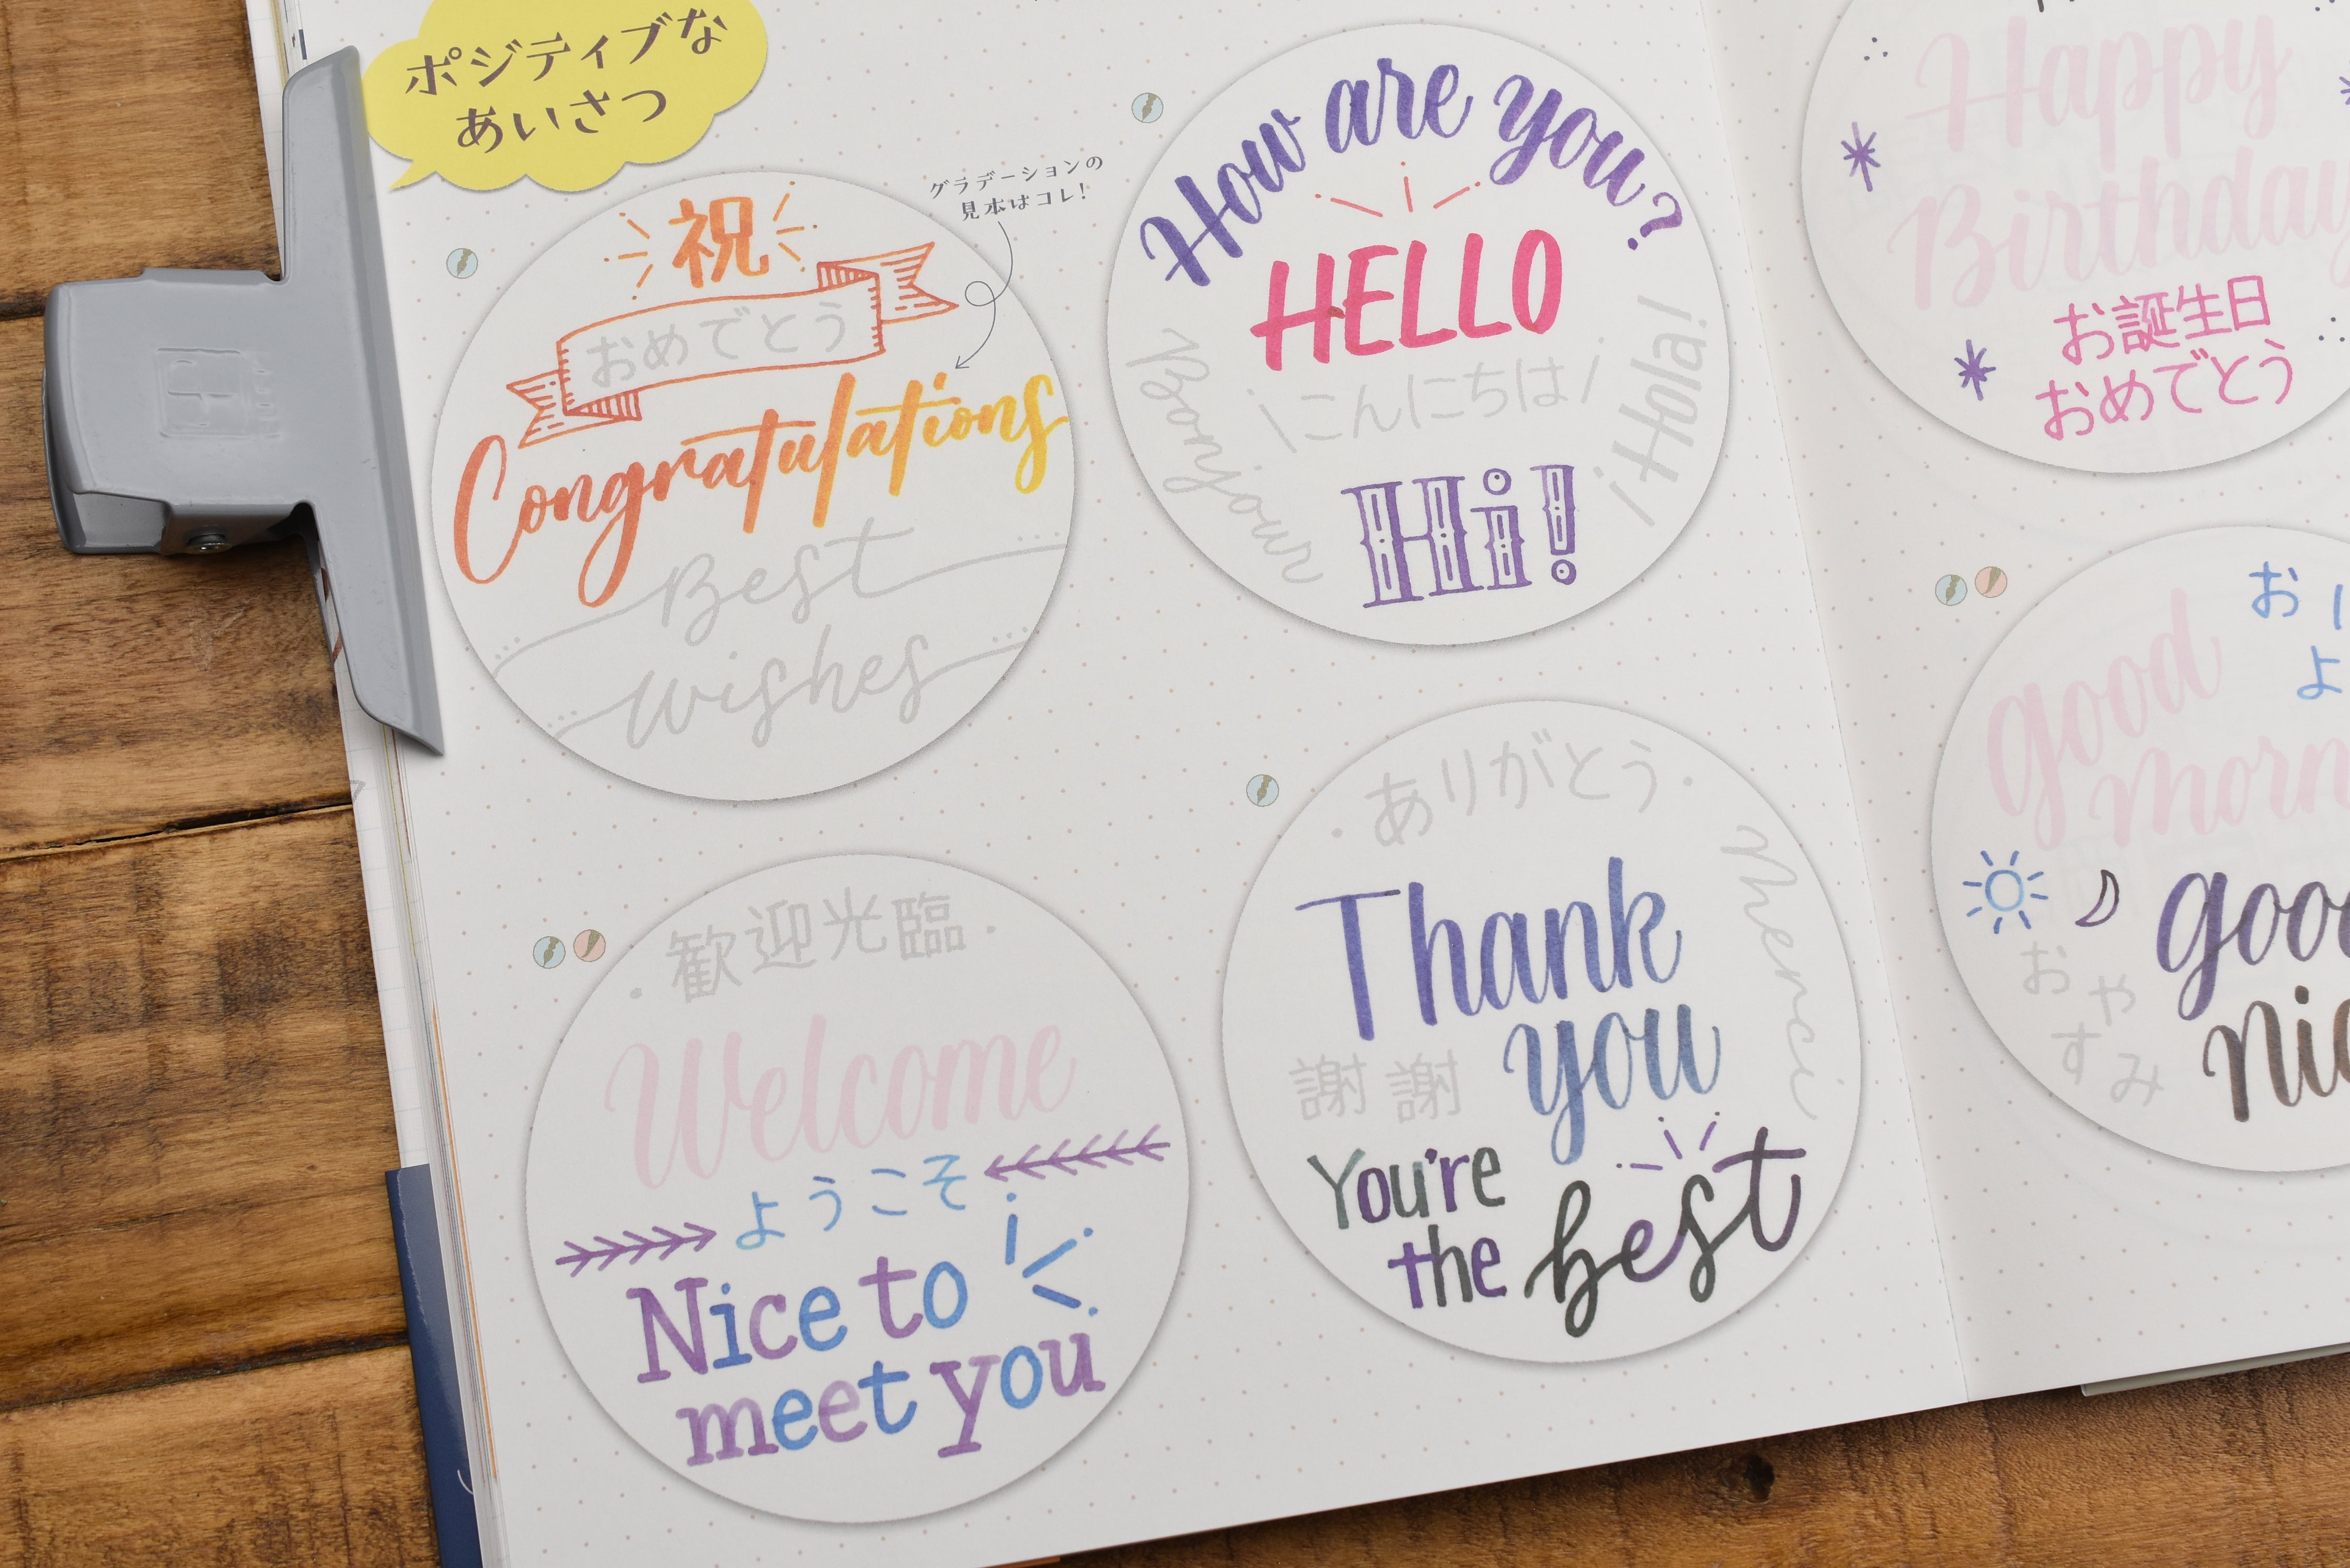 ポジティブな
あいさつ
祝
おめでとう
グラデーションの
見本はコレ!
Congratulations
Best
Wishes
How are you?
HELLO
\こんにちは/
Bonjour
¡Hola!
Hi!
歓迎光臨
Welcome
ようこそ
Nice to
meet you
・ありがとう・
Thank
you
Merci
謝謝
You're
the best
Happy
Birthday
お誕生日
おめでとう
good
お
よ
おやすみ